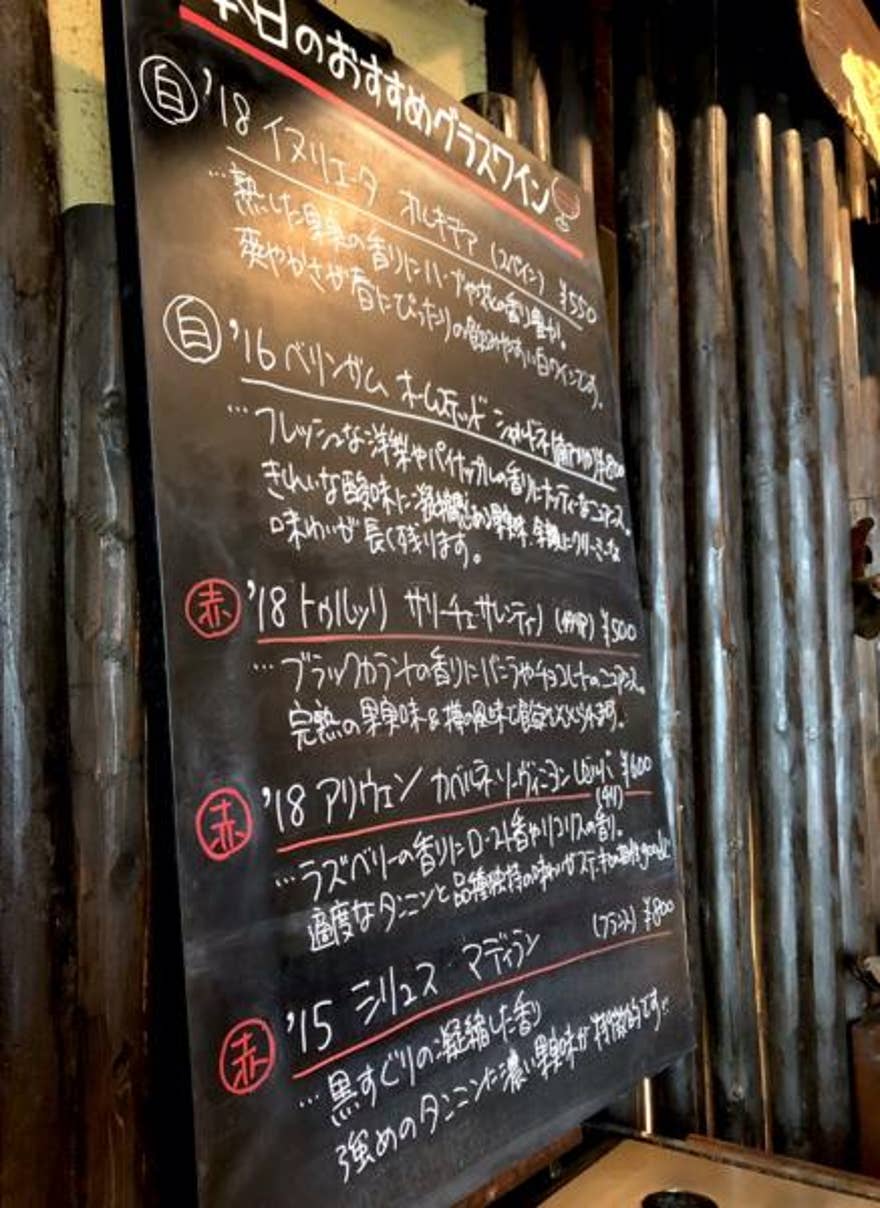 本日のおすすめグラスワイン
白 '18 イヌリエータ オルキデア (スペイン) ¥550
…熟した果実の香りにハーブや花の香り豊か。
爽やかさが春にぴったりの飲みやすい白ワインです。
白 '16 ベリンガム ホームステッド シャルドネ (南アフリカ) ¥800
…フレッシュな洋梨やパイナップルの香りにナッティーなニュアンス。
きれいな酸味に凝縮感ある果実味、余韻にクリーミーな
味わいが長く残ります。
赤 '18 トゥルッリ サリーチェサレンティーノ (イタリア) ¥500
…ブラックカラントの香りにバニラやチョコレートのニュアンス。
完熟の果実味&樽の風味で
赤 '18 アリウェン カベルネ・ソーヴィニヨン レゼルバ ¥600
(チリ)
…ラズベリーの香りにローストの香やリコリスの香り。
適度なタンニンと品種独特の味わいがステーキとの相性good!
赤 '15 シリュス・マディラン (フランス) ¥800
…黒すぐりの凝縮した香り
強めのタンニンに濃い果実味が特徴的です!!